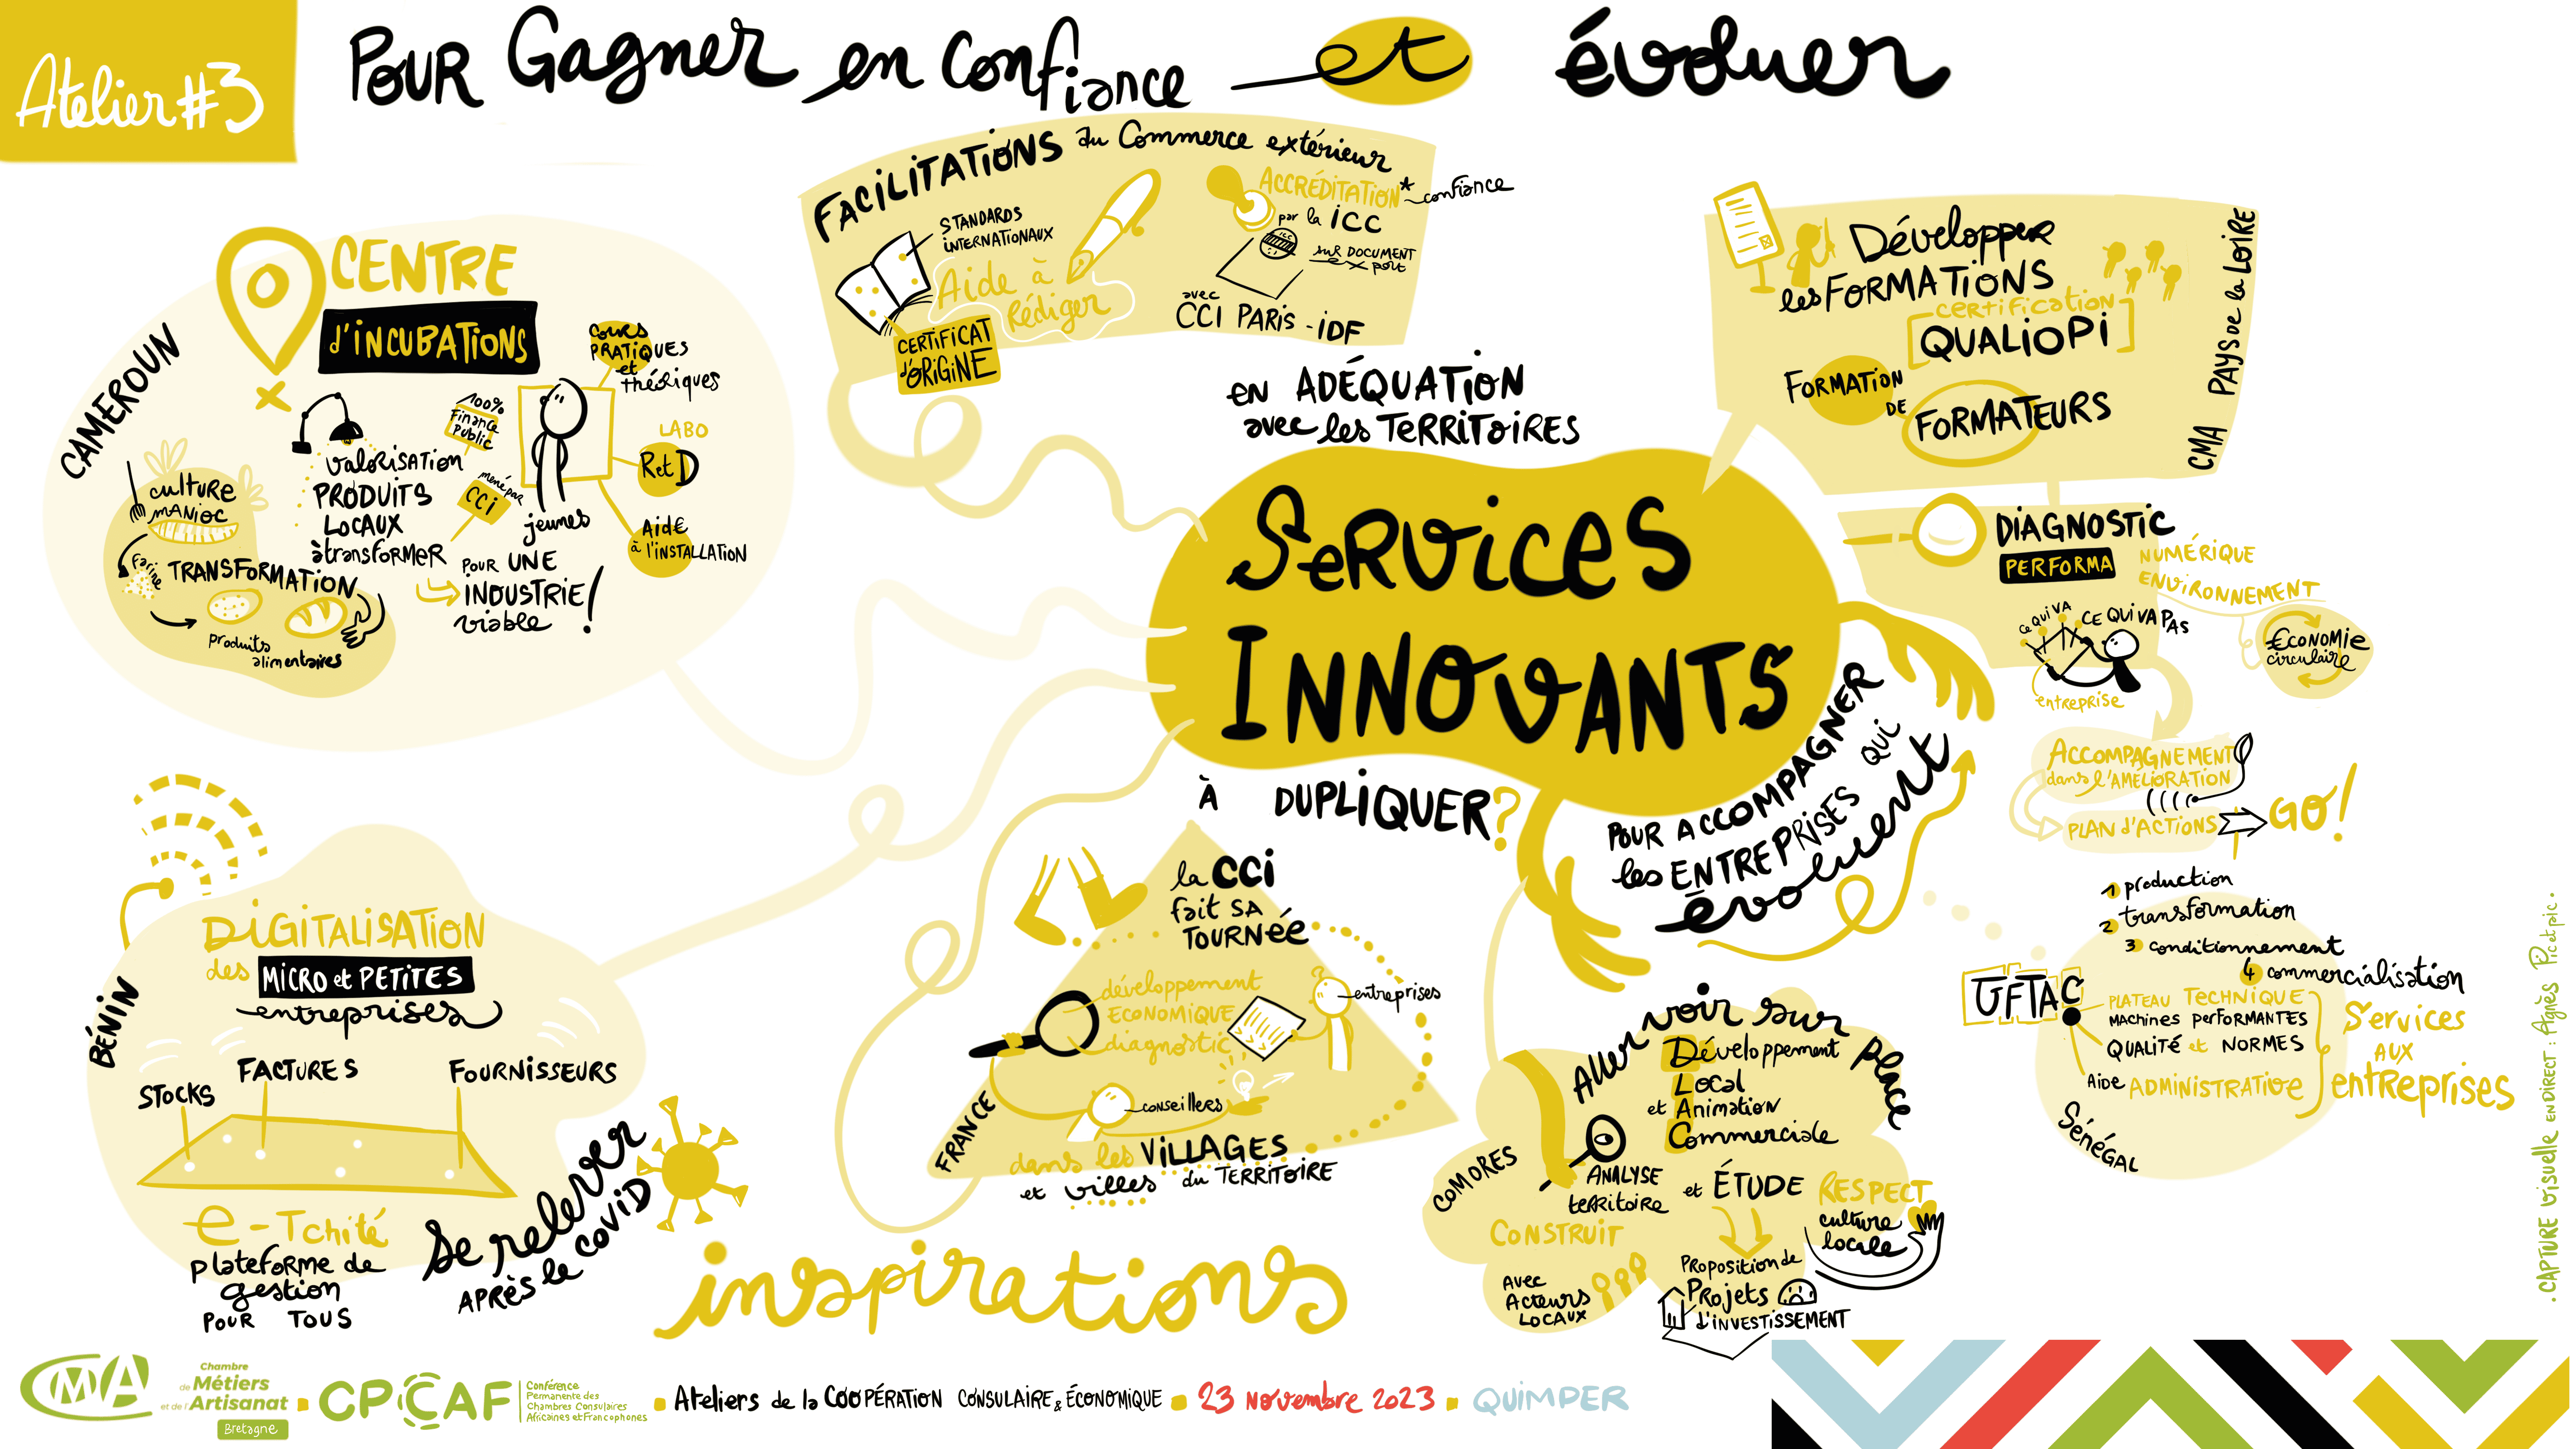 Atelier #3
Pour Gagner en confiance et évoluer
CAMEROUN
CENTRE
d'INCUBATIONS
culture
manioc
farine
TRANSFORMATION
produits
alimentaires
valorisation
PRODUITS
LOCAUX
à transformer
100%
Finance
public
mené par
CCi
jeunes
cours
PRATIQUES
et
théoriques
LABO
R et D
Aide
à l'INSTALLATION
POUR UNE
INDUSTRIE !
viable
FACILITATIONS du Commerce extérieur
STANDARDS
INTERNATIONAUX
Aide à
Rédiger
CERTIFICAT
d'ORIGINE
ACCRÉDITATION*
confiance
par la ICC
ICC
sur DOCUMENT
export
avec
CCI PARIS - IDF
en ADÉQUATION
avec les TERRITOIRES
Services
INNOVANTS
À DUPLIQUER ?
POUR ACCOMPAGNER
les ENTREPRISES QUI
évoluent
Développer
les FORMATIONS
certification
[QUALIOPI]
FORMATION
DE
FORMATEURS
CMA PAYS de la LOIRE
DIAGNOSTIC
PERFORMA
NUMÉRIQUE
ENVIRONNEMENT
ÉCONOMIE
circulaire
ce QUI VA
CE QUI VA PAS
entreprise
ACCOMPAGNEMENT
dans l'AMÉLIORATION
PLAN d'ACTIONS
GO!
1 production
2 transformation
3 conditionnement
4 commercialisation
UFTAC
PLATEAU TECHNIQUE
MACHINES PERFORMANTES
QUALITÉ et NORMES
Aide ADMINISTRATIVE
Services
AUX
entreprises
Sénégal
BÉNIN
DIGITALISATION
des MICRO et PETITES
entreprises
STOCKS
FACTURES
FOURNISSEURS
e-Tchité
plateforme de
gestion
POUR TOUS
Se relever
APRÈS le COVID
FRANCE
la CCI
fait SA
TOURNÉE
développement
ECONOMIQUE
diagnostic
entreprises
conseillers
dans les VILLAGES
et villes du TERRITOIRE
inspirations
COMORES
Aller voir sur place
Développement
Local
et Animation
Commerciale
ANALYSE
territoire
et ÉTUDE
RESPECT
culture
locale
CONSTRUIT
AVEC
ACTEURS
LOCAUX
Proposition de
Projets
d'INVESTISSEMENT
. CAPTURE visuelle EN DIRECT : Agnès Picetpic .
CMA
Chambre
de Métiers
et de l'Artisanat
Bretagne
CPCCAF
Conférence
Permanente des
Chambres Consulaires
Africaines et Francophones
Ateliers de la COOPÉRATION CONSULAIRE & ÉCONOMIQUE
23 novembre 2023
QUIMPER